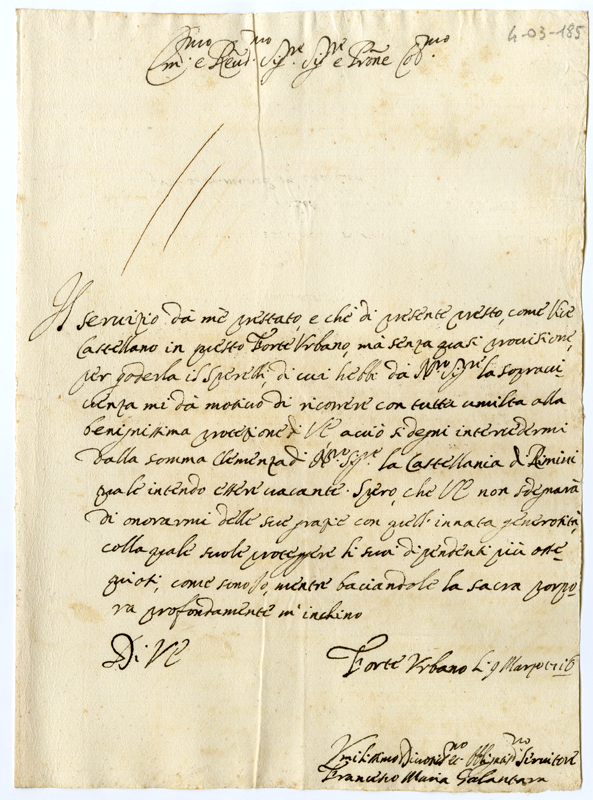 4-03-185
Em.mo e Reud.mo Sig.re Sig.re e Prone Col.mo
Il seruizio da me prestato, e che di presente presto, come Vice
Castellano in questo Forte Vrbano, mà senza quasi prouisione,
per goderla il Sperelli, di cui hebbi dà N.ro Sig.re la soprauiu
uenza mi dà motiuo di ricorrere con tutta umiltà alla
benignissima protezione di VE acciò si degni intercedermi
dalla somma Clemenza di N.ro Sig.re la Castellania di Rimini
quale intendo essere uacante. Spero, che VE non sdegnarà
di onorarmi delle sue grazie con quell'innata generosità,
colla quale suole proteggere li suoi dipendenti più osse=
quiosi, come sono Io, mentre baciandole la sacra porpo=
ra profondamente m'inchino
Di VE
Forte Vrbano li 9 Marzo
Vmilissimo Diuotis.mo et Obligatis.mo Seruitore
Francesco Maria Galantara